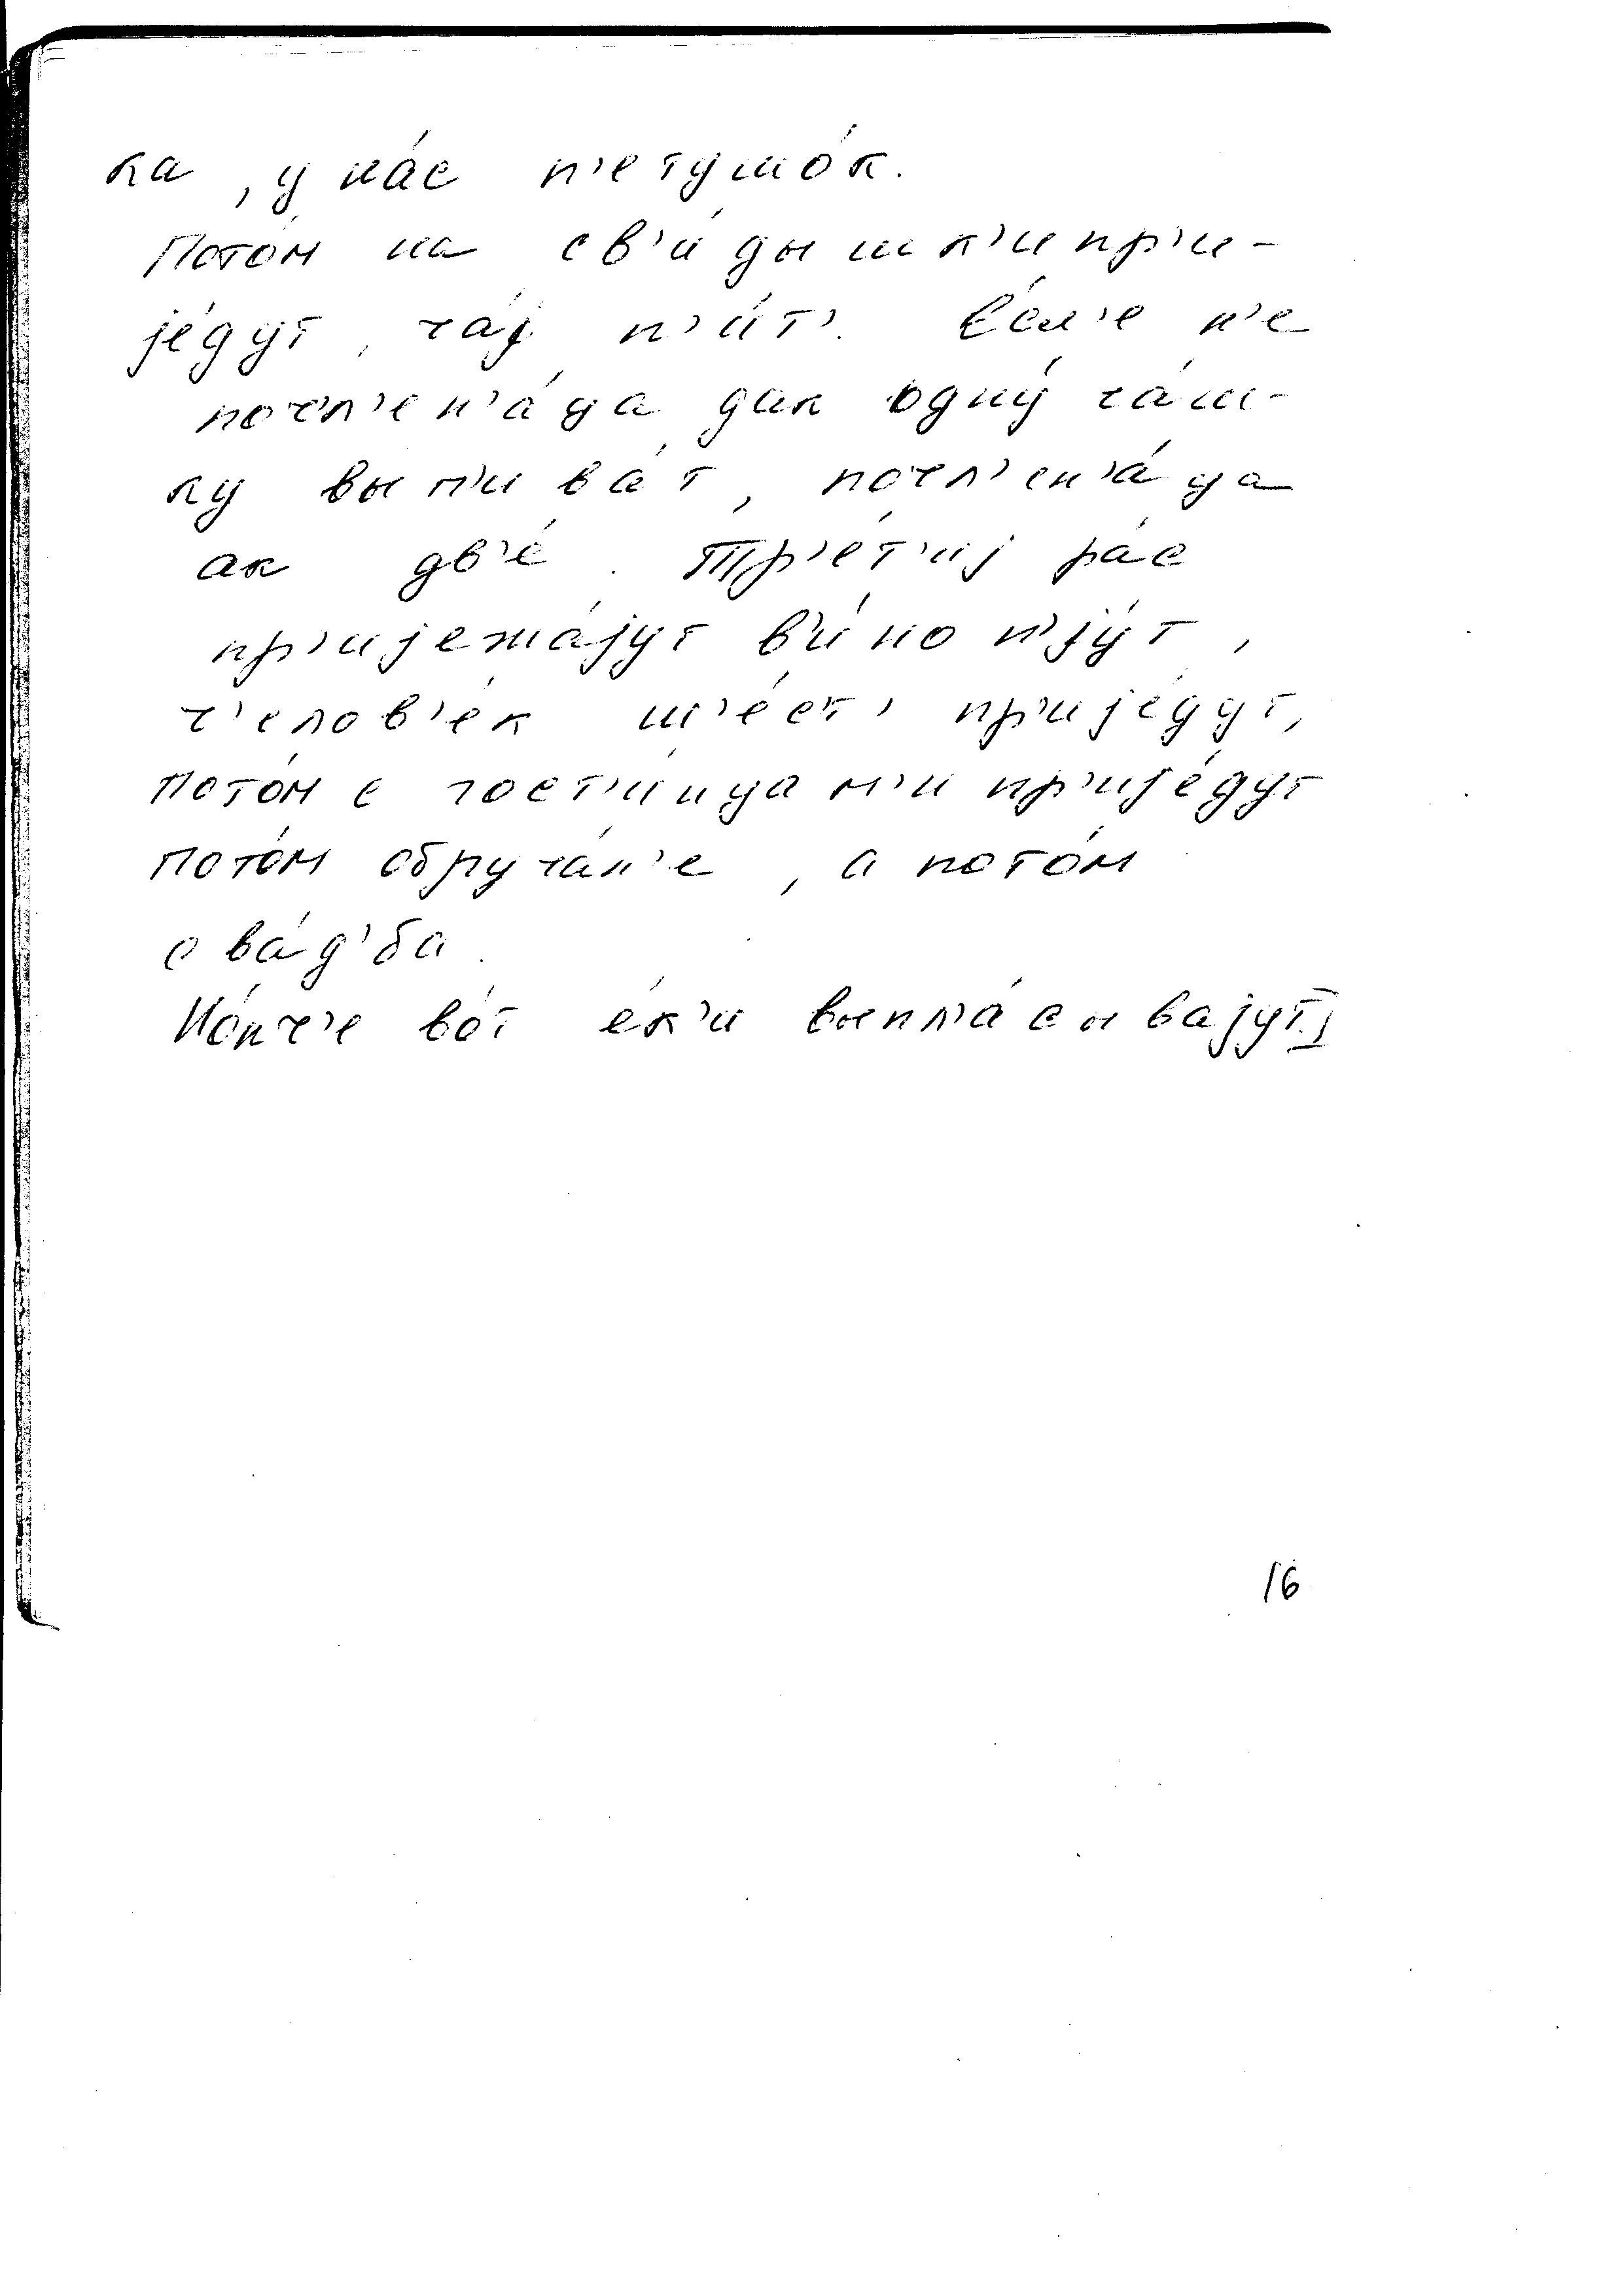 ка, у на́с п'етушо́к.
Пото́м на св'и́дышк'и пр'и-
jе́дут, ча́j п'и́т'. Е́сл'е н'е
погл'ен'а́ца дак одну́ ча́ш-
ку вып'ива́т, погл'ен'а́ца
ак дв'е́. Тр'е́т'иj ра́с
пр'иjежа́jут в'ино́ п'jу́т,
ч'елов'е́к ш'е́ст' пр'иjе́дут,
пото́м с гост'и́нцам'и пр'иjе́дут
пото́м обруча́н'е, а пото́м
сва́д'ба.
Но́нч'е во́т е́к'и выпл'а́сываjут.
16